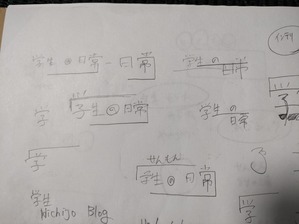 学生の日常
日常
学生の
日常
学
学生の日常
学生の
日常
学
せんもん
学生の日常
学
学生
Nichijo Blog